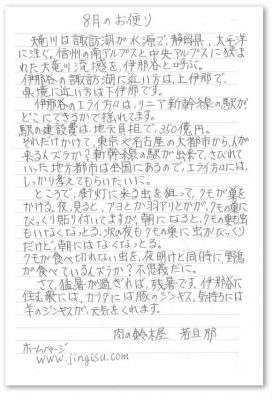 8月のお便り
天竜川は諏訪湖が水源で、静岡県、太平洋
に注ぐ。信州の南アルプスと中央アルプスに狭ま
れた天竜川流域を、伊那谷と呼ぶ。
伊那谷の諏訪湖に近い方は上伊那で、
県境に近い方は下伊那です。
伊那谷のエライ方々は、リニア新幹線の駅が
どこにできるかで揺れてます。
駅の建設費は地元負担で、350億円。
それだけかけて、東京や名古屋の大都市から人が
来るんズラか?新幹線の駅が出来て、さびれて
いった地方都市は全国にあるので、エライ方々には、
しっかり考えてもらいたいに。
ところで、街灯に来る虫を狙って、クモが巣を
かける。夜、見ると、ブヨとか羽アリとかガが、クモの巣に
びっくり貼り付いてますが、朝になると、クモの巣も虫
もいなくなっとる。次の夜もクモの巣に、虫がびっくり
だけど、朝にはなくなっとる。
クモが食べ切れない虫を、夜明けと同時に、野鳥
が食べているんズラか?不思議だに。
さて、猛暑が過ぎれば、残暑です。伊那谷に
住む衆には、カラダには豚のジンギス、気持ちには
羊のジンギスが、元気をくれます。
肉の鈴木屋 若旦那
ホームページ
www.jingisu.com